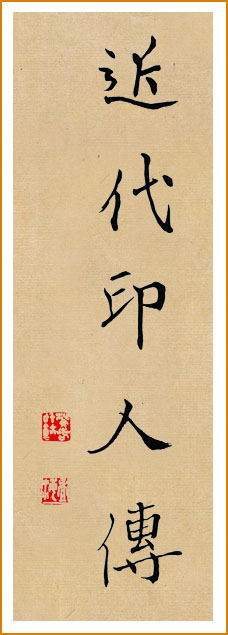 近代印人傳